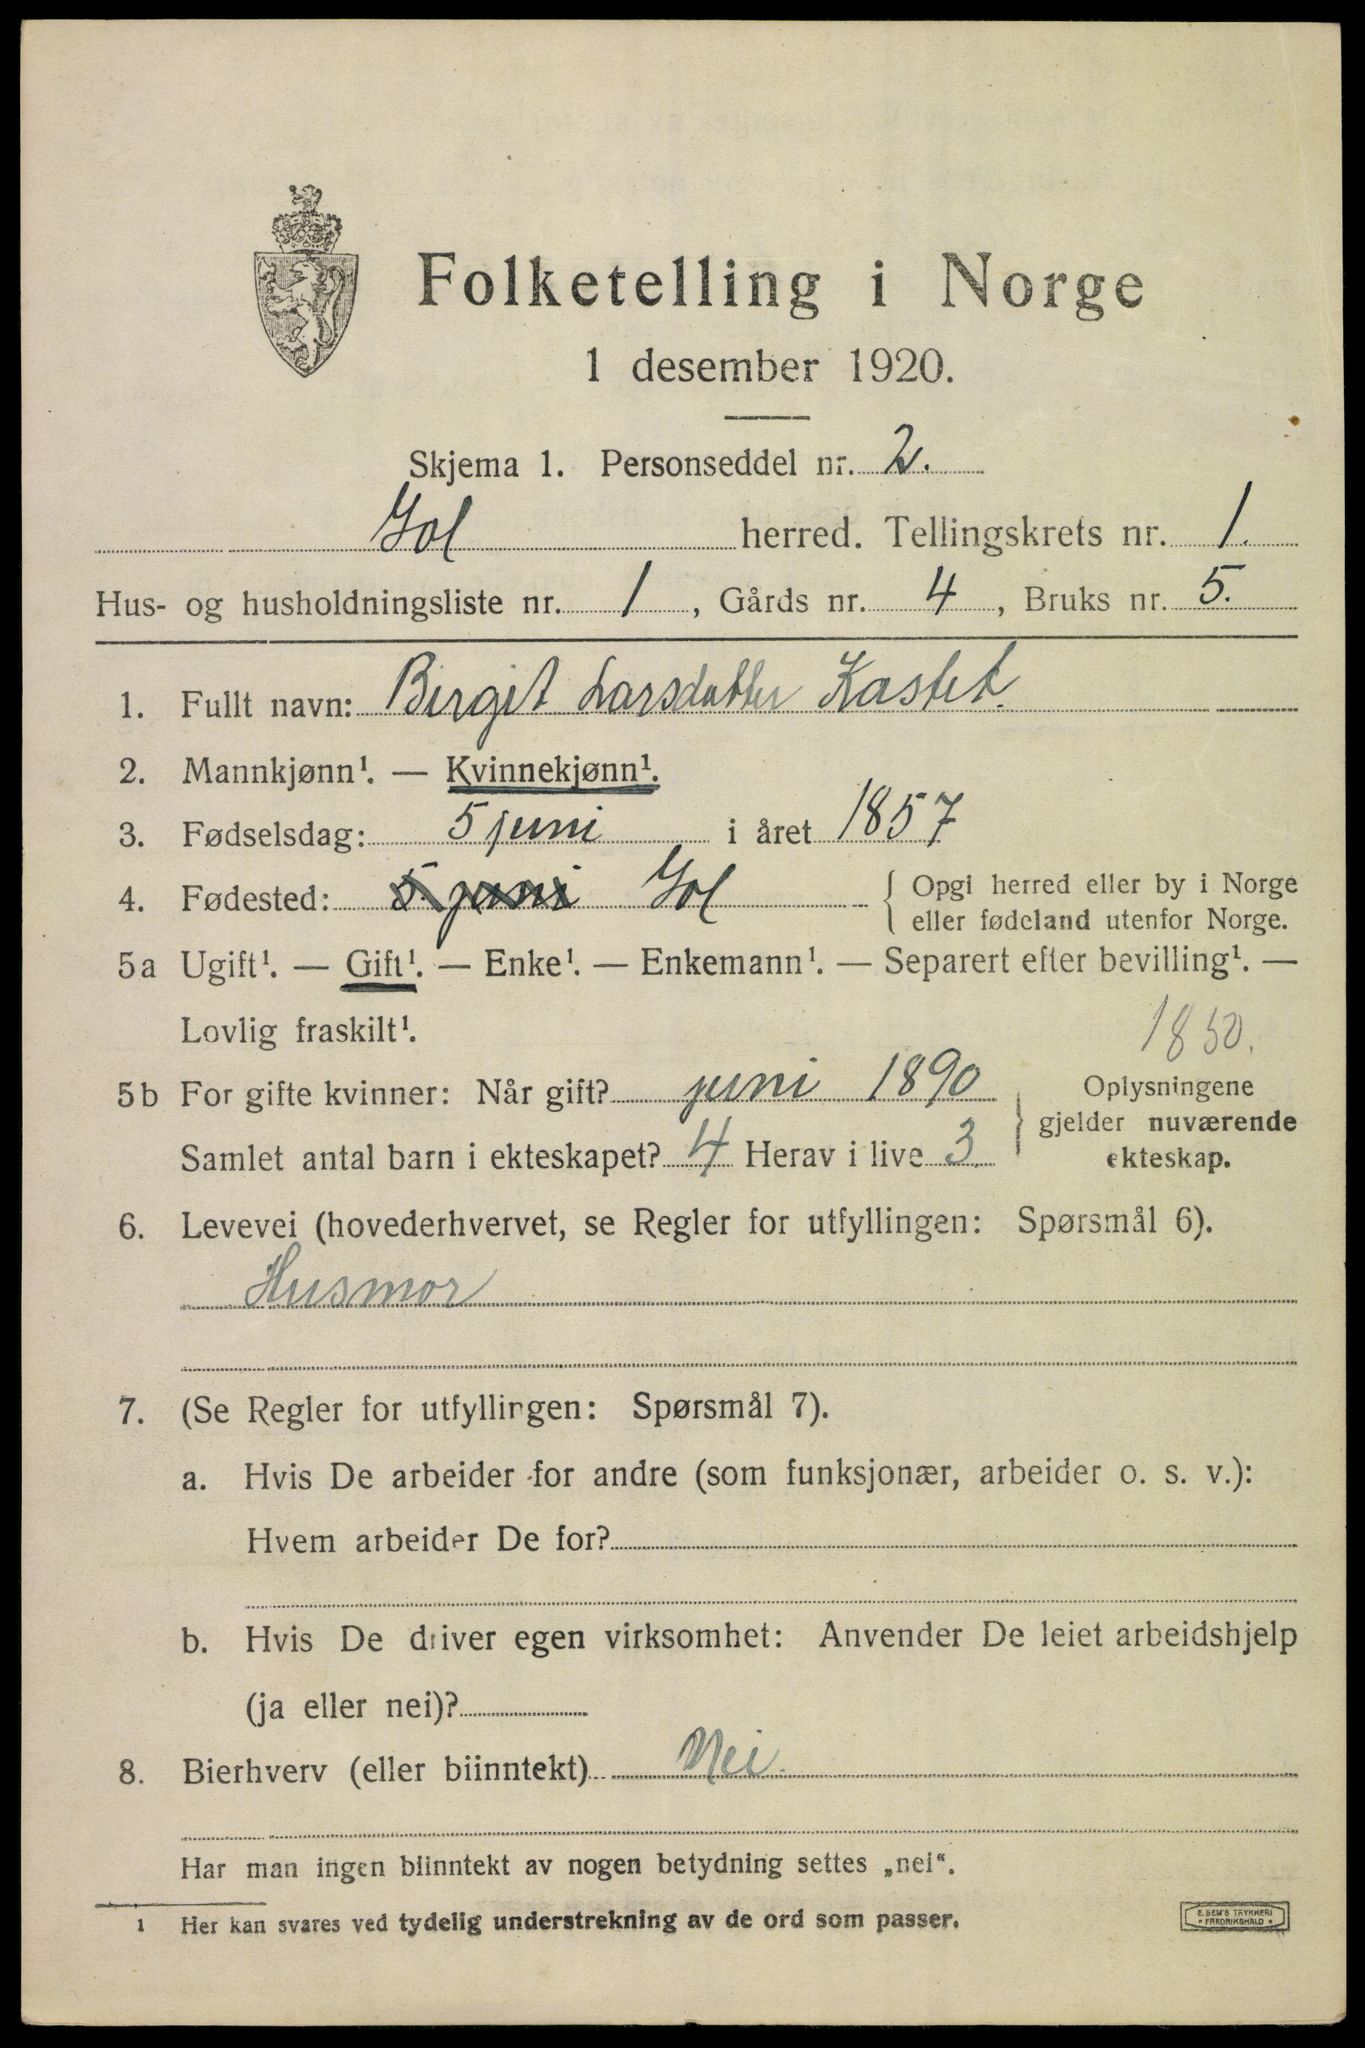 Folketelling i Norge
1 desember 1920.
Skjema 1. Personseddel nr. 2.
Gol herred. Tellingskrets nr. 1.
Hus- og husholdningsliste nr. 1, Gårds nr. 4, Bruks nr. 5.
1. Fullt navn: Birgit Larsdatter Kastet.
2. Mannkjønn¹. — Kvinnekjønn¹.
3. Fødselsdag: 5 juni i året 1857
4. Fødested: 5 juni Gol { Opgi herred eller by i Norge
eller fødeland utenfor Norge.
5a Ugift¹. — Gift¹. — Enke¹. — Enkemann¹. — Separert efter bevilling¹. —
Lovlig fraskilt¹.
1850.
5b For gifte kvinner: Når gift? juni 1890 } Oplysningene
gjelder nuværende
Samlet antal barn i ekteskapet? 4 Herav i live 3 ekteskap.
6. Levevei (hovederhvervet, se Regler for utfyllingen: Spørsmål 6).
Husmor
7. (Se Regler for utfyllingen: Spørsmål 7).
a. Hvis De arbeider for andre (som funksjonær, arbeider o. s. v.):
Hvem arbeider De for?
b. Hvis De driver egen virksomhet: Anvender De leiet arbeidshjelp
(ja eller nei)?
8. Bierhverv (eller biinntekt) Nei.
Har man ingen biinntekt av nogen betydning settes „nei“.
1 Her kan svares ved tydelig understrekning av de ord som passer.
E. SEM'S TRYKKERI
• FREDRIKSHALD •